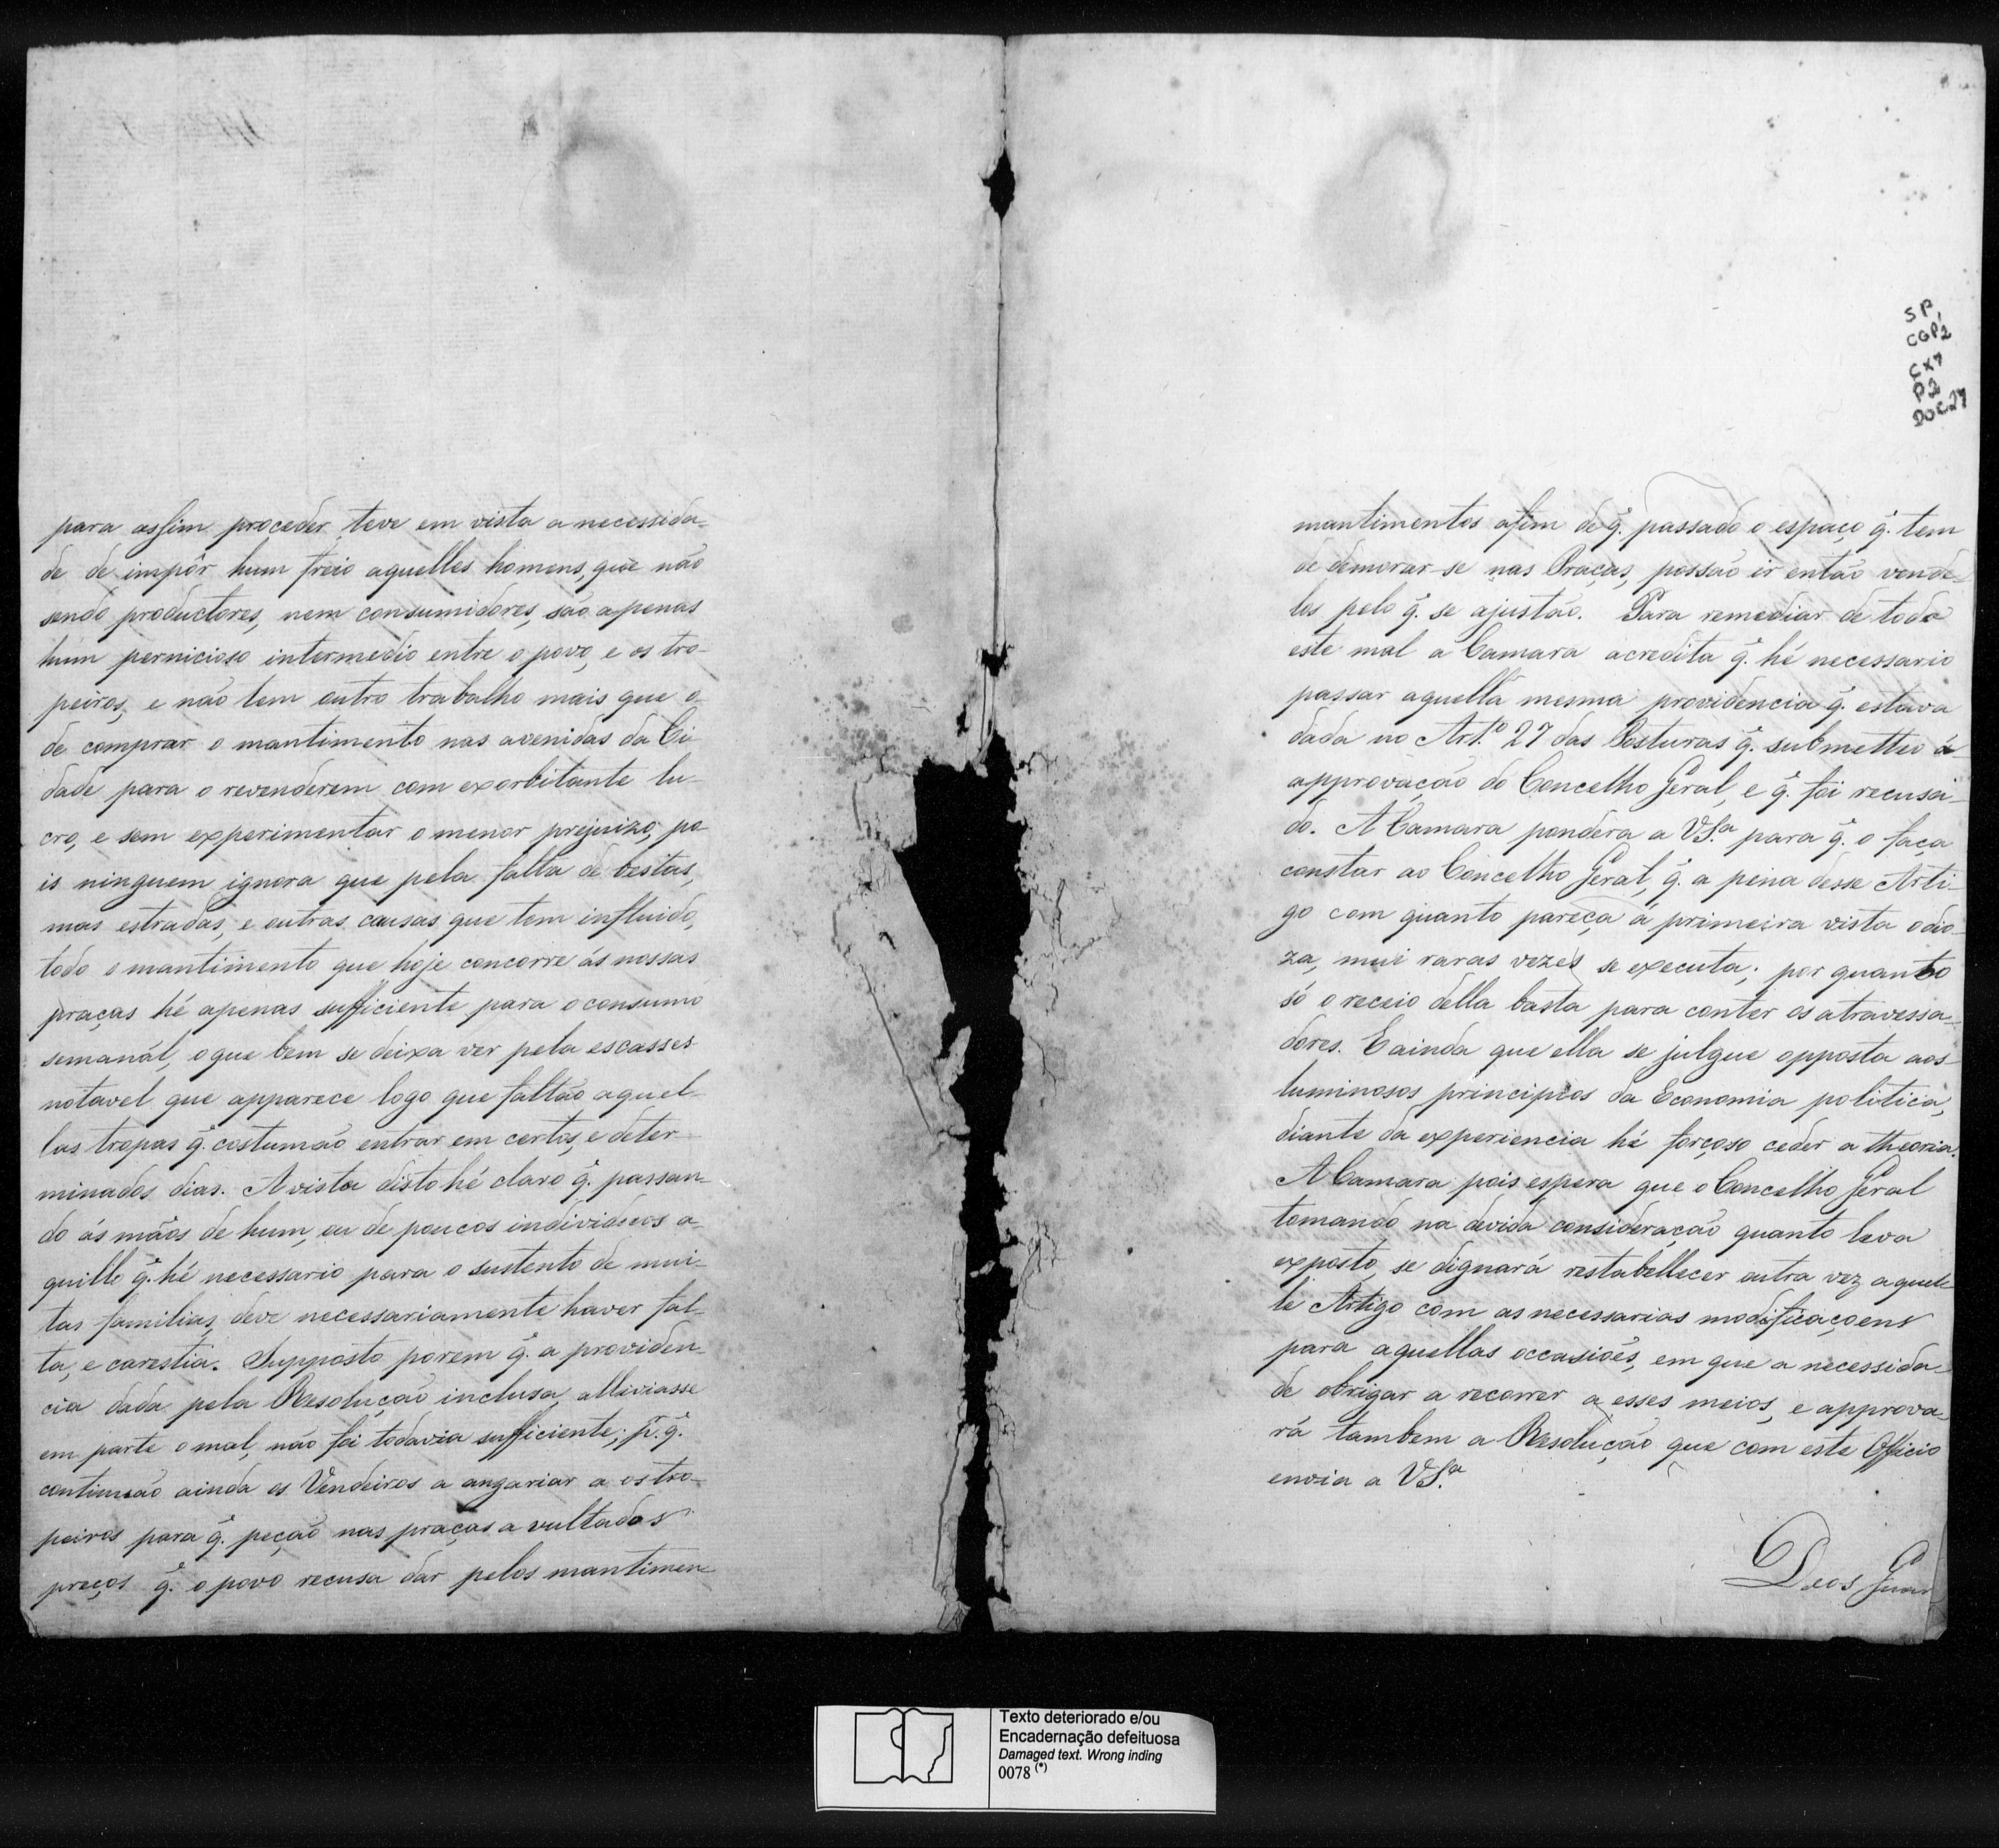 para assim proceder teve em vista a necessida-
de de impôr hum freio aquelles homens, que não
sendo productores, nem consumidores, são apenas
hum pernicioso intermedio entre o povo, e os tro-
peiros, e não tem outro trabalho mais que o
de comprar o mantimento nas avenidas da Ci-
dade para o revenderem com exorbitante lu-
cro, e sem experimentar o menor prejuizo, po-
is ninguem ignora que pela falta de bestas,
mas estradas, e outras causas que tem influido,
todo o mantimento que hoje concorre ás nossas
praças hé apenas sufficiente para o consumo
semanál, o que bem se deixa ver pela escasses
notavel que apparece logo que faltão aquel-
las tropas q̃. costumão entrar em certos, e deter-
minados dias. A vista disto hé claro q̃. passan-
do ás mãos de hum, ou de poucos individuos a-
quillo q̃. hé necessario para o sustento de mui-
tas familias, deve necessariamente haver fal-
ta, e carestia. Supposto porem q̃. a providen-
cia dada pela Resolução inclusa, alliviasse
em parte o mal, não foi todavia sufficiente; p.q̃.
continuão ainda os Vendeiros a angariar a os tro-
peiros para q̃. peção nas praças avultados
preços q̃. o povo recusa dar pelos mantimen
mantimentos afim de q̃. passado o espaço q̃. tem
de demorar-se nas Praças, possão ir então vende-
los pelo q̃. se ajustão. Para remediar de todo
este mal a Camara acredita q̃. hé necessario
passar aquella mesma providencia q̃. estava
dada no Art.º 27 das Posturas q̃. submetteo á
approvação do Concelho Geral, e q̃. foi recusa-
do. A Camara pondera a VS.ª para q̃. o faça
constar ao Concelho Geral, q̃. a pena desse Arti-
go com quanto pareça á primeira vista odio-
za, mui raras vezes se executa; por quanto
só o receio della basta para conter os atravessa-
dores. E ainda que ella se julgue opposta aos
luminosos principios da Economia politica,
diante da experiencia hé forçoso ceder a theoria.
A Camara pois espera que o Concelho Geral
tomando na devida consideração quanto leva
exposto, se dignará restabellecer outra vez aquel-
le Artigo com as necessarias modificaçoens
para aquellas occasiões, em que a necessida-
de obrigar a recorrer a esses meios, e approva-
rá tambem a Resolução que com este Officio
envia a VS.ª
Deos Guar
SP,
CGP2
CX7
P2
DOC27
Texto deteriorado e/ou
Encadernação defeituosa
Damaged text. Wrong inding
0078 (*)